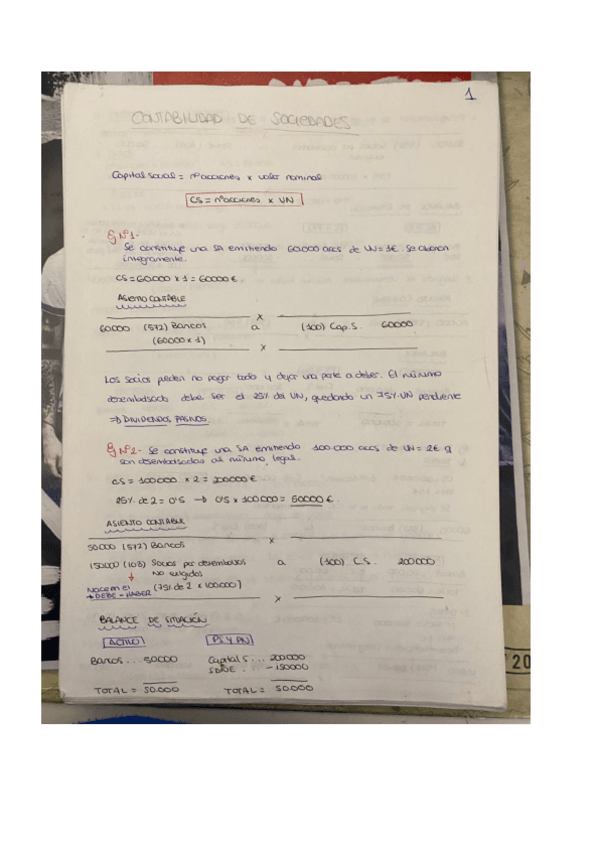 1
CONTABILIDAD DE SOCIEDADES
Capital social = nº acciones x valor nominal
CS = nº acciones x VN
Ej Nº1-
Se constituye una SA emitiendo 60.000 accs de VN = 1€. Se abonan
íntegramente.
CS = 60.000 x 1 = 60000 €.
ASIENTO CONTABLE
x
60000 (572) Bancos a (100) Cap. S. 60000
(60000 x 1)
x
Los socios pueden no pagar todo y dejar una parte a deber. El mínimo
desembolsado debe ser el 25% del VN, quedando un 75% VN pendiente
⇒ DIVIDENDOS PASIVOS.
Ej Nº2- Se constituye una SA emitiendo 100.000 accs de VN = 2€ y
son desembolsadas al mínimo legal.
CS = 100.000 x 2 = 200000 €
25% de 2 = 0'5 → 0'5 x 100.000 = 50000 €.
ASIENTO CONTABLE
x
50.000 (572) Bancos
150000 (103) Socios por desembolsos a (100) C.S. 200000
No exigidos
Nacen en el (75% de 2 x 100.000)
DEBE - HABER
x
BALANCE DE SITUACIÓN
ACTIVO PS Y PN
Bancos... 50000 Capital S... 200000
SDNE. -150000
TOTAL = 50.000 TOTAL = 50.000
20